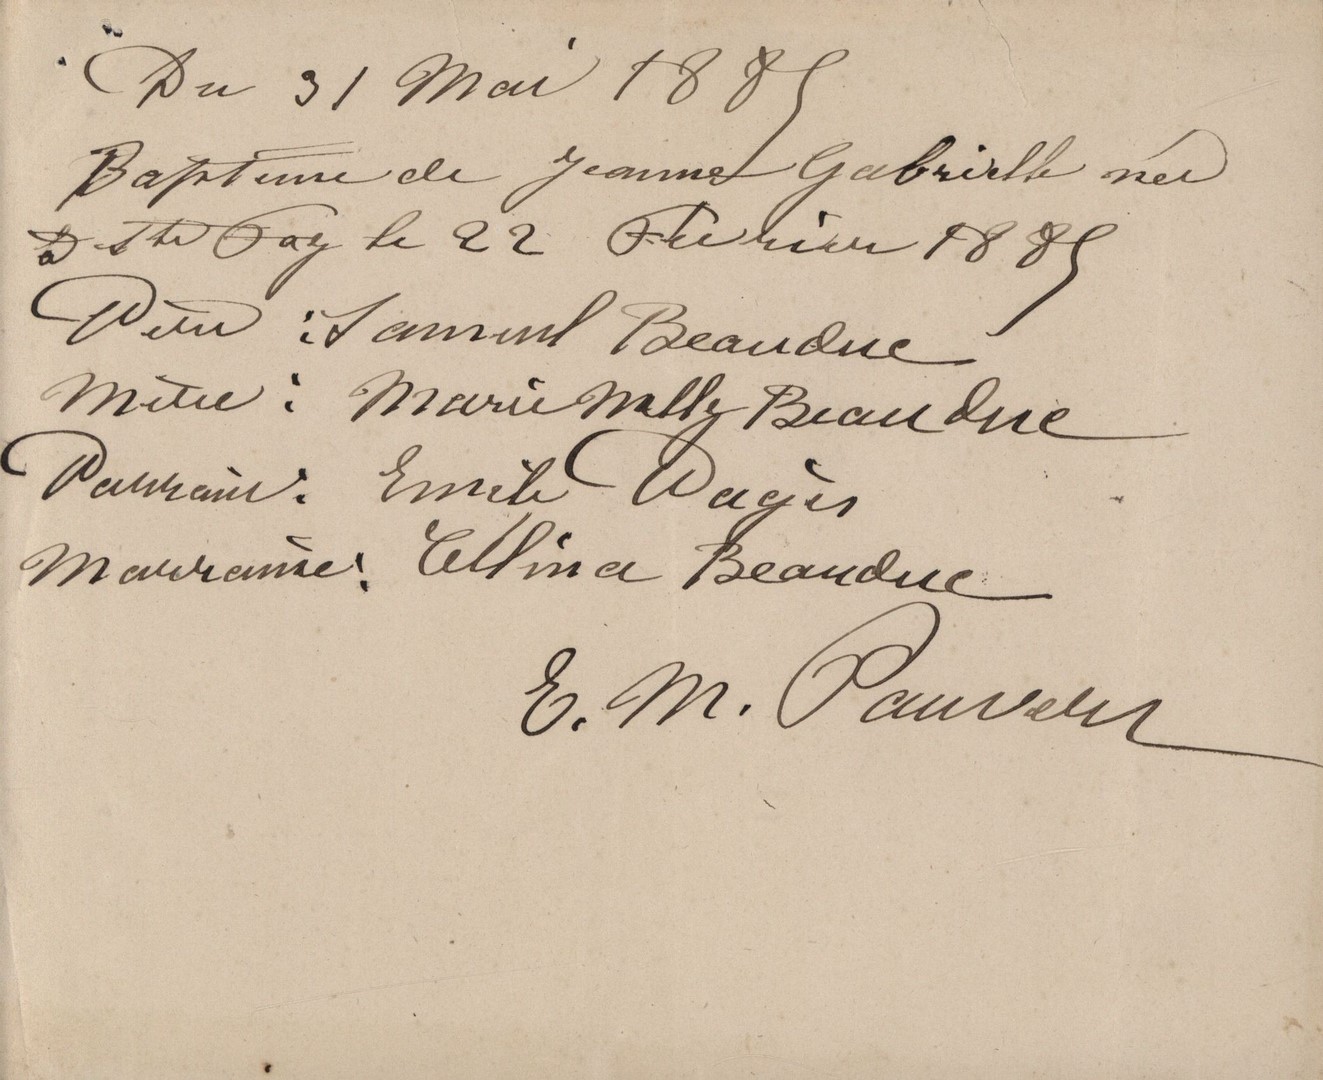 Du 31 Mai 1885
Baptême de Jeanne Gabrielle née
à Ste Foy le 22 Février 1885
Père : Samuel Beauduc
Mère : Marie Nelly Beauduc
Parrain : Emile Pagès
Marraine : Cellina Beauduc
E. M.